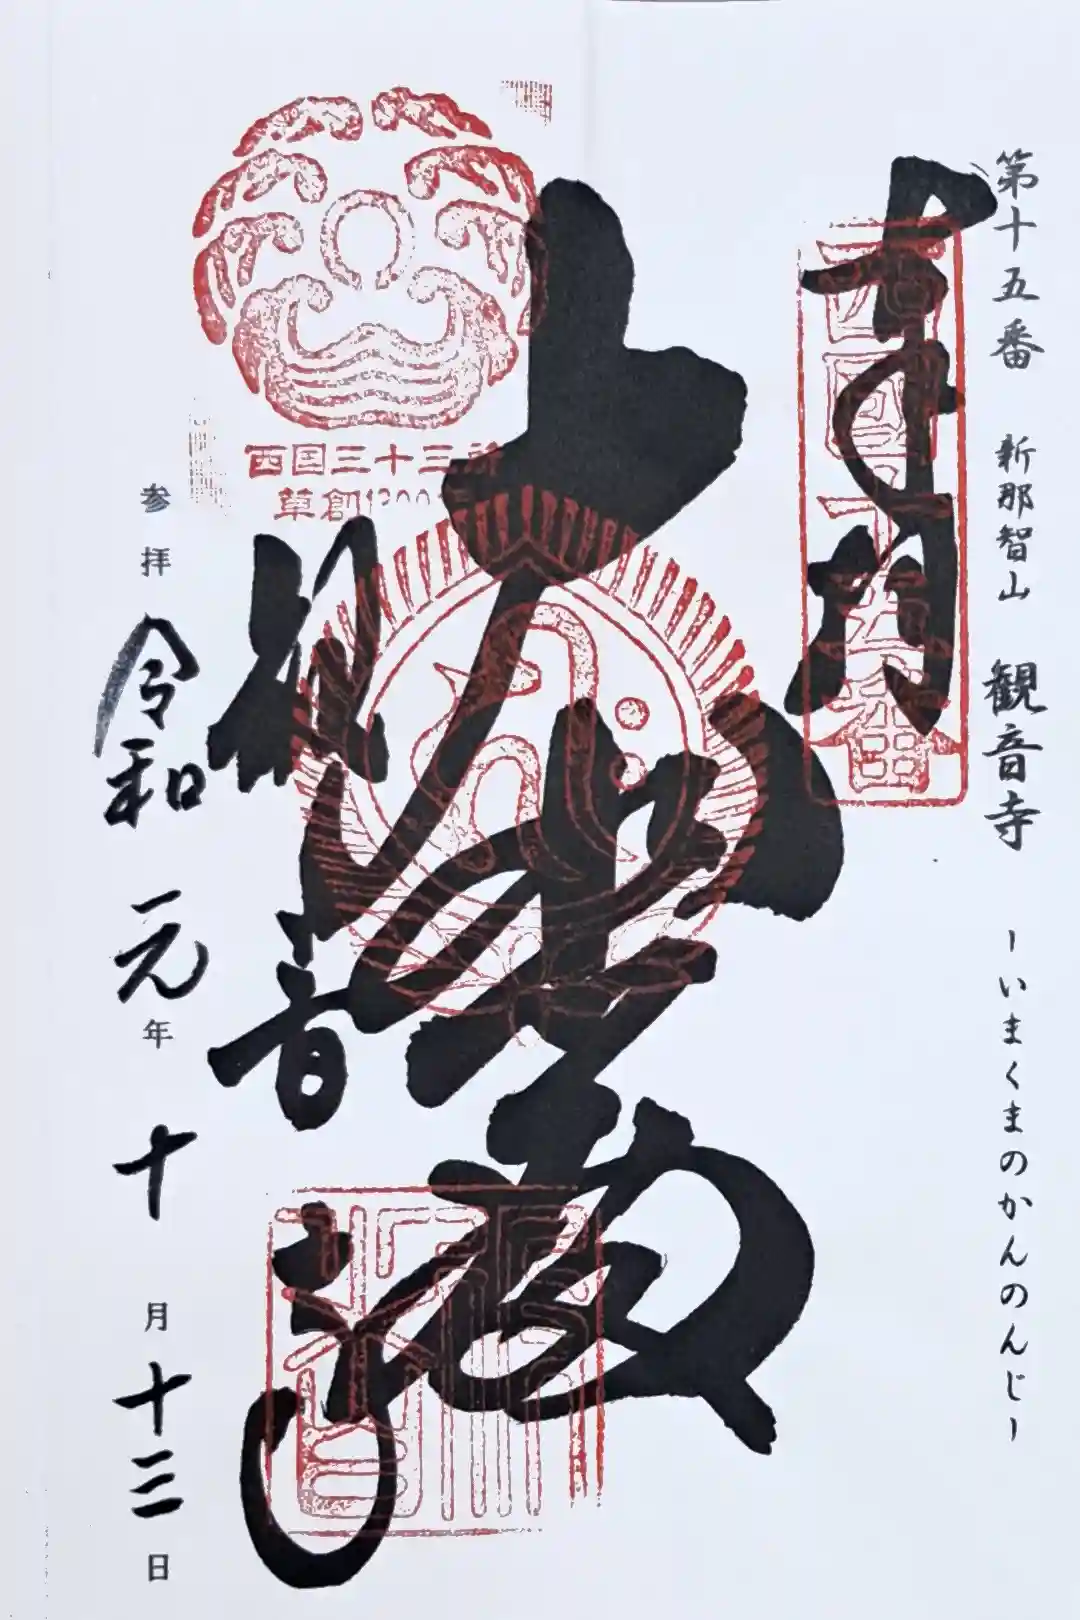 第十五番 新那智山 観音寺 -いまくまのかんのんじ-
奉拝
西国十五番
大悲殿
西国三十三所
草創1300年
観音寺
参拝 令和 元年 十月 十三日